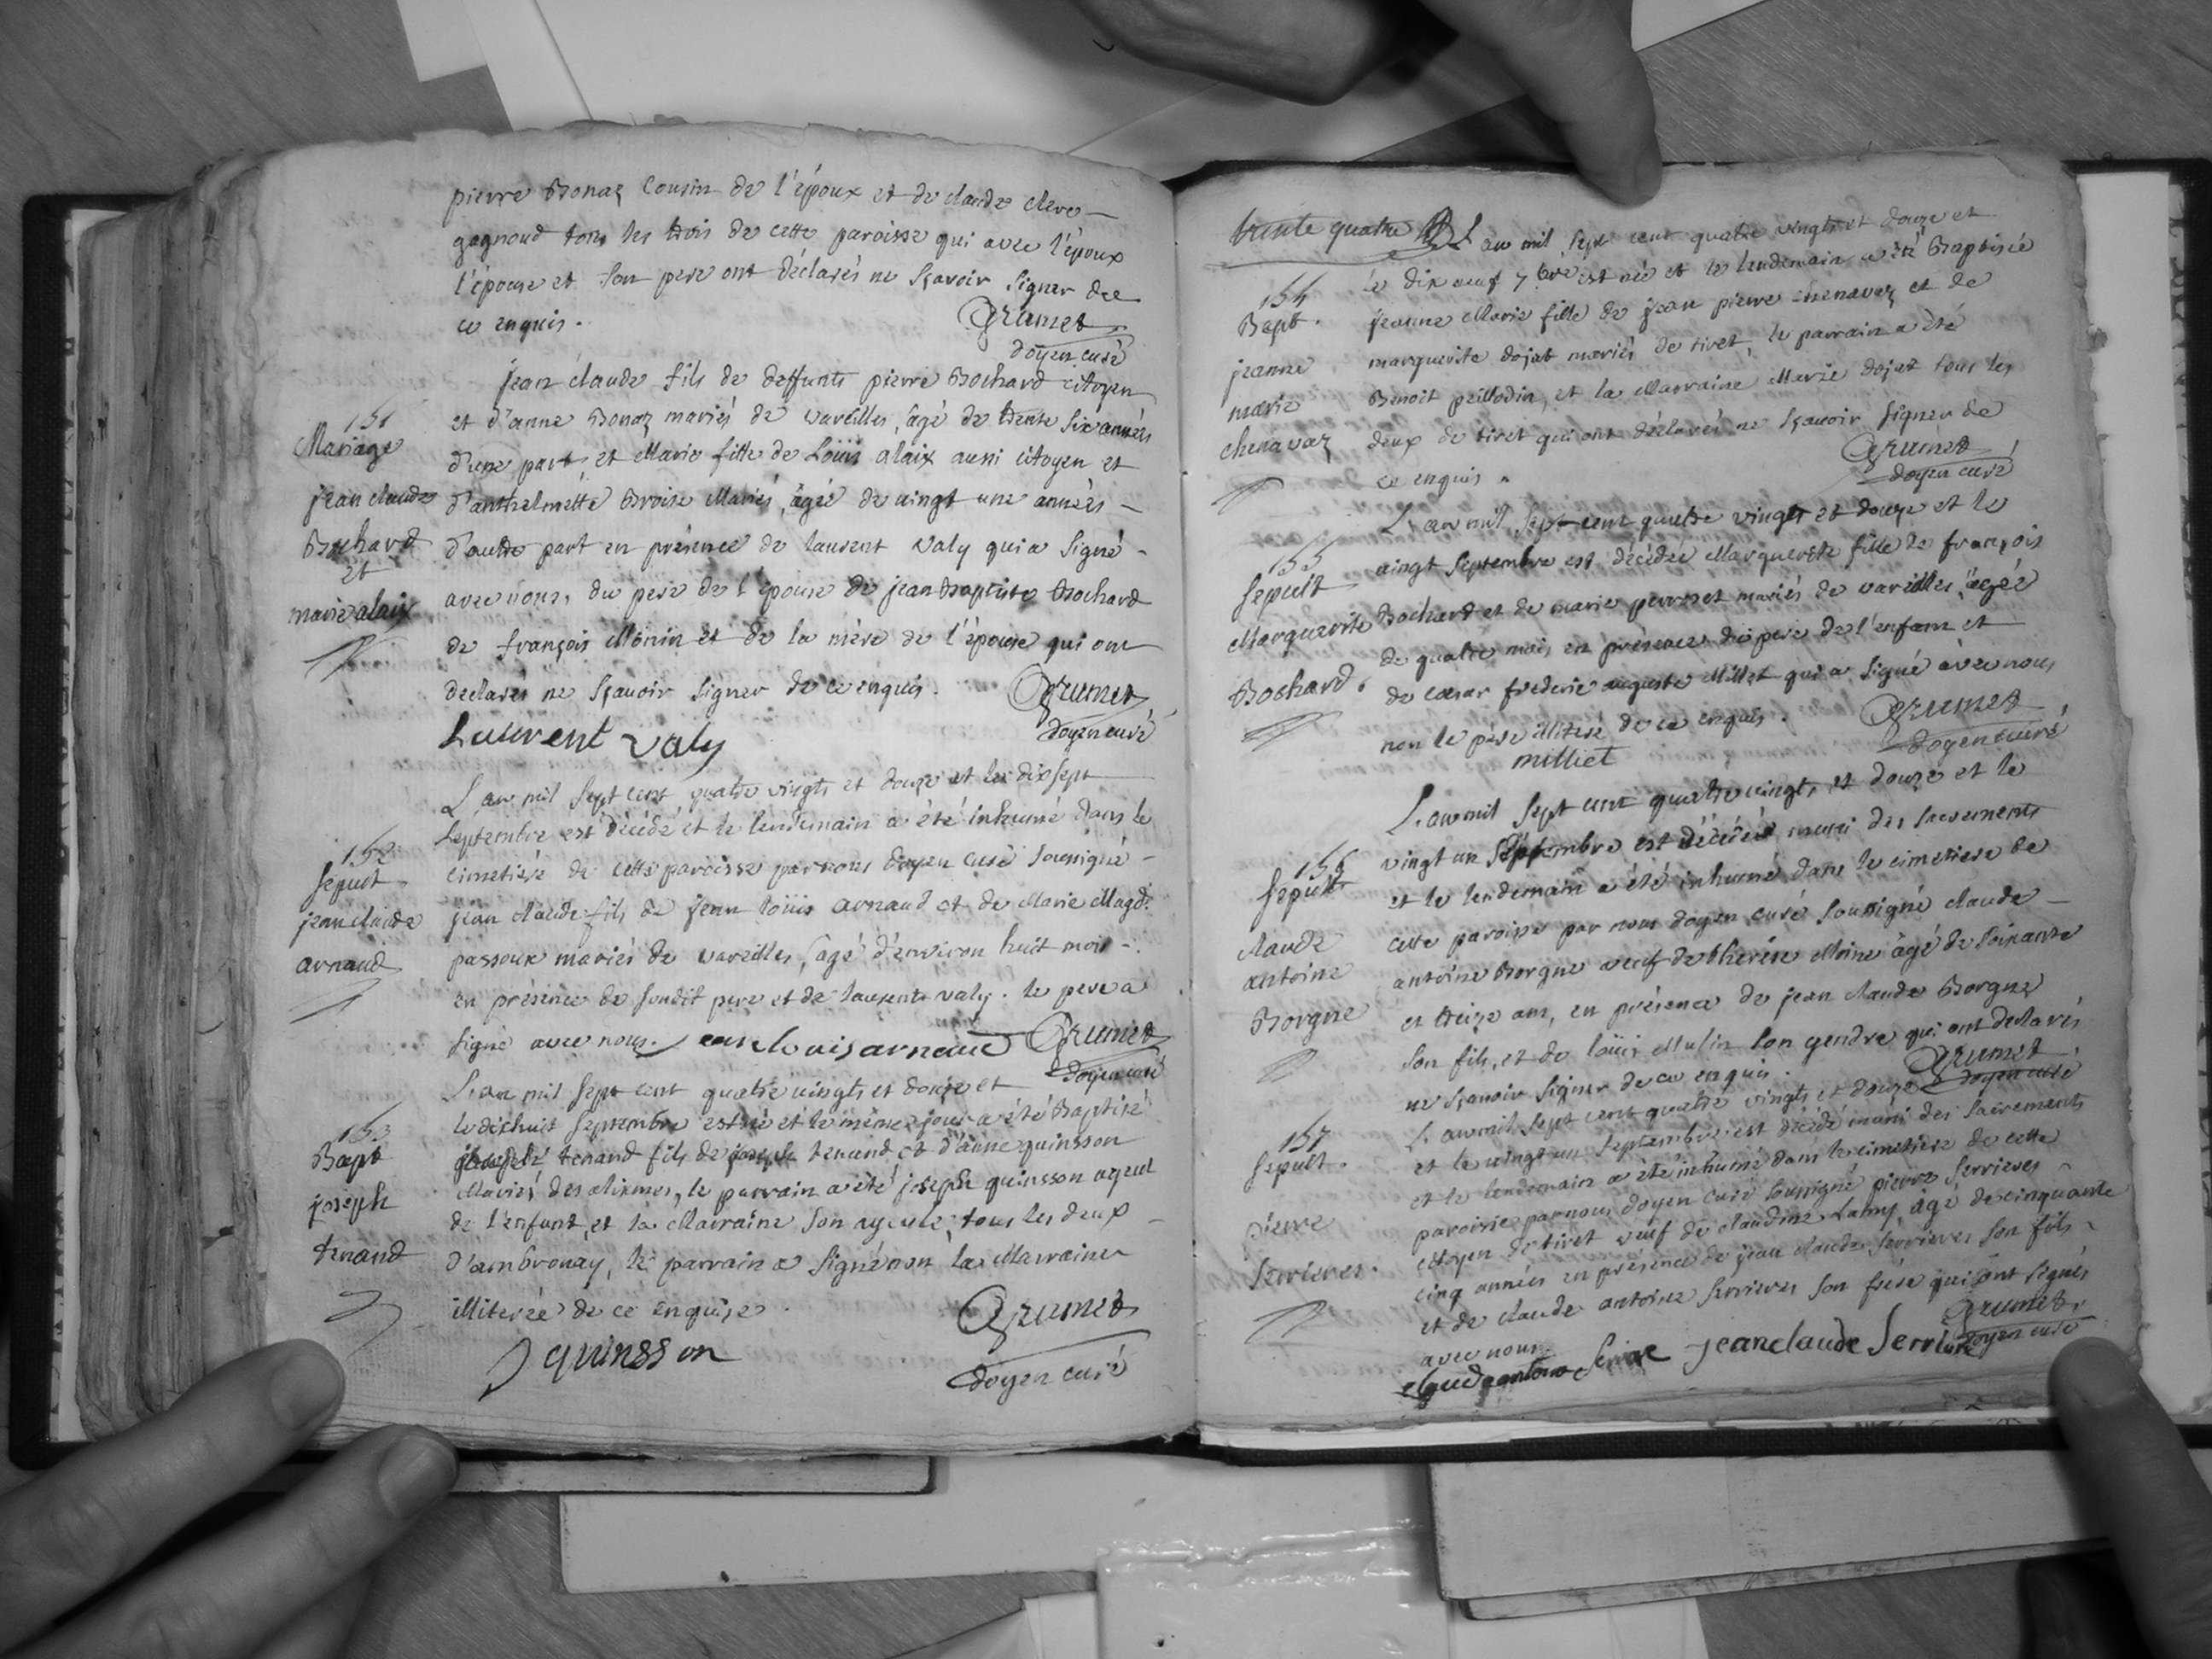 pierre Bonaz Cousin de l'époux et de claude clere-
gagnoud tous les trois de cette paroisse qui avec l'époux
l'épouse et son pere ont déclarés ne sçavoir signer de
ce enquis.
Grumet
doyen curé
151
Mariage
jean claude
Bochard
et
marie alaix
jean claude fils de deffunts pierre Bochard citoyen
et d'anne Bonaz mariés de vareilles, âgé de trente six années
d'une part, et Marie fille de Loüis alaix aussi citoyen et
d'anthelmette Broise Mariés, âgée de vingt une années -
d'autre part en présence de laurent valy qui a signé -
avec nous, du pere de l'épouse de jean Baptiste Bochard
de françois Monin et de la mère de l'épouse qui ont
declarés ne sçavoir signer de ce enquis.
Grumet
doyen curé
Laurent valy
152
sepult
jean claude
arnaud
L'an mil sept cent quatre vingts et douze et le dix sept
septembre est décédé et le lendemain a été inhumé dans le
cimetiére de cette paroisse par nous doyen curé soussigné -
jean claude fils de jean loüis arnaud et de Marie Magd.e
passoux mariés de vareilles, âgé d'environ huit mois -.
en présence de sondit pere et de laurent valy. le pere a
signé avec nous. jean Louis arneaud Grumet
doyen curé
153
Bapt
joseph
tenand
L'an mil sept cent quatre vingts et douze et
le dixhuit septembre est né et le même jour a été Baptisé
joseph tenand fils de joseph tenand et d'anne quinsson
Mariés des alixmes, le parrain a été joseph quinsson ayeul
de l'enfant, et la Marraine son ayeule, tous les deux -
d'ambronay, le parrain a signé non la Marraine
illiterée de ce enquise.
Grumet
doyen curé
J quinsson
trente quatre
154
Bapt.
jeanne
marie
chenavaz
L'an mil sept cent quatre vingts et douze et
le dix neuf 7.bre est née et le lendemain a été Baptisée
jeanne Marie fille de jean pierre chenavaz et de
marguerite dojat mariés de tiret, le parrain a été
Benoit peillodin, et la Marraine Marie dojat tous les
deux de tiret qui ont déclarés ne sçavoir signer de
ce enquis.
Grumet
doyen curé
155
sepult
Marguerite
Bochard.
L'an mil sept cent quatre vingts et douze et le
vingt septembre est décédée Marguerite fille de françois
Bochard et de marie perrozet mariés de vareilles, âgée
de quatre mois, en présence du pere de l'enfant et
de cæsar frederic auguste Milliet qui a signé avec nous
non le pére illiteré de ce enquis.
Grumet
doyen curé
milliet
156
sepult
claude
antoine
Borgne
L'an mil sept cent quatre vingts et douze et le
vingt un septembre est décédé muni des sacrements
et le lendemain a été inhumé dans le cimetiere de
cette paroisse par nous doyen curé soussigné claude -
antoine Borgne veuf de thérése Moine âgé de soixante
et treize ans, en présence de jean claude Borgne
son fils, et de loüis Mulin son gendre qui ont declarés
ne sçavoir signer de ce enquis.
Grumet
doyen curé
157
sepult.
pierre
serrieres.
L'an mil sept cent quatre vingts et douze
et le vingt un septembre est décédé muni des sacrements
et le lendemain a été inhumé dans le cimetiere de cette
paroisse par nous doyen curé soussigné pierre serrieres -
citoyen de tiret veuf de claudine Lamy âgé de cinquante
cinq années en présence de jean claude serrieres son fils -
et de claude antoine serrieres son frére qui ont signés
avec nous.
Grumet
doyen curé
claude antoine jean claude Serriere